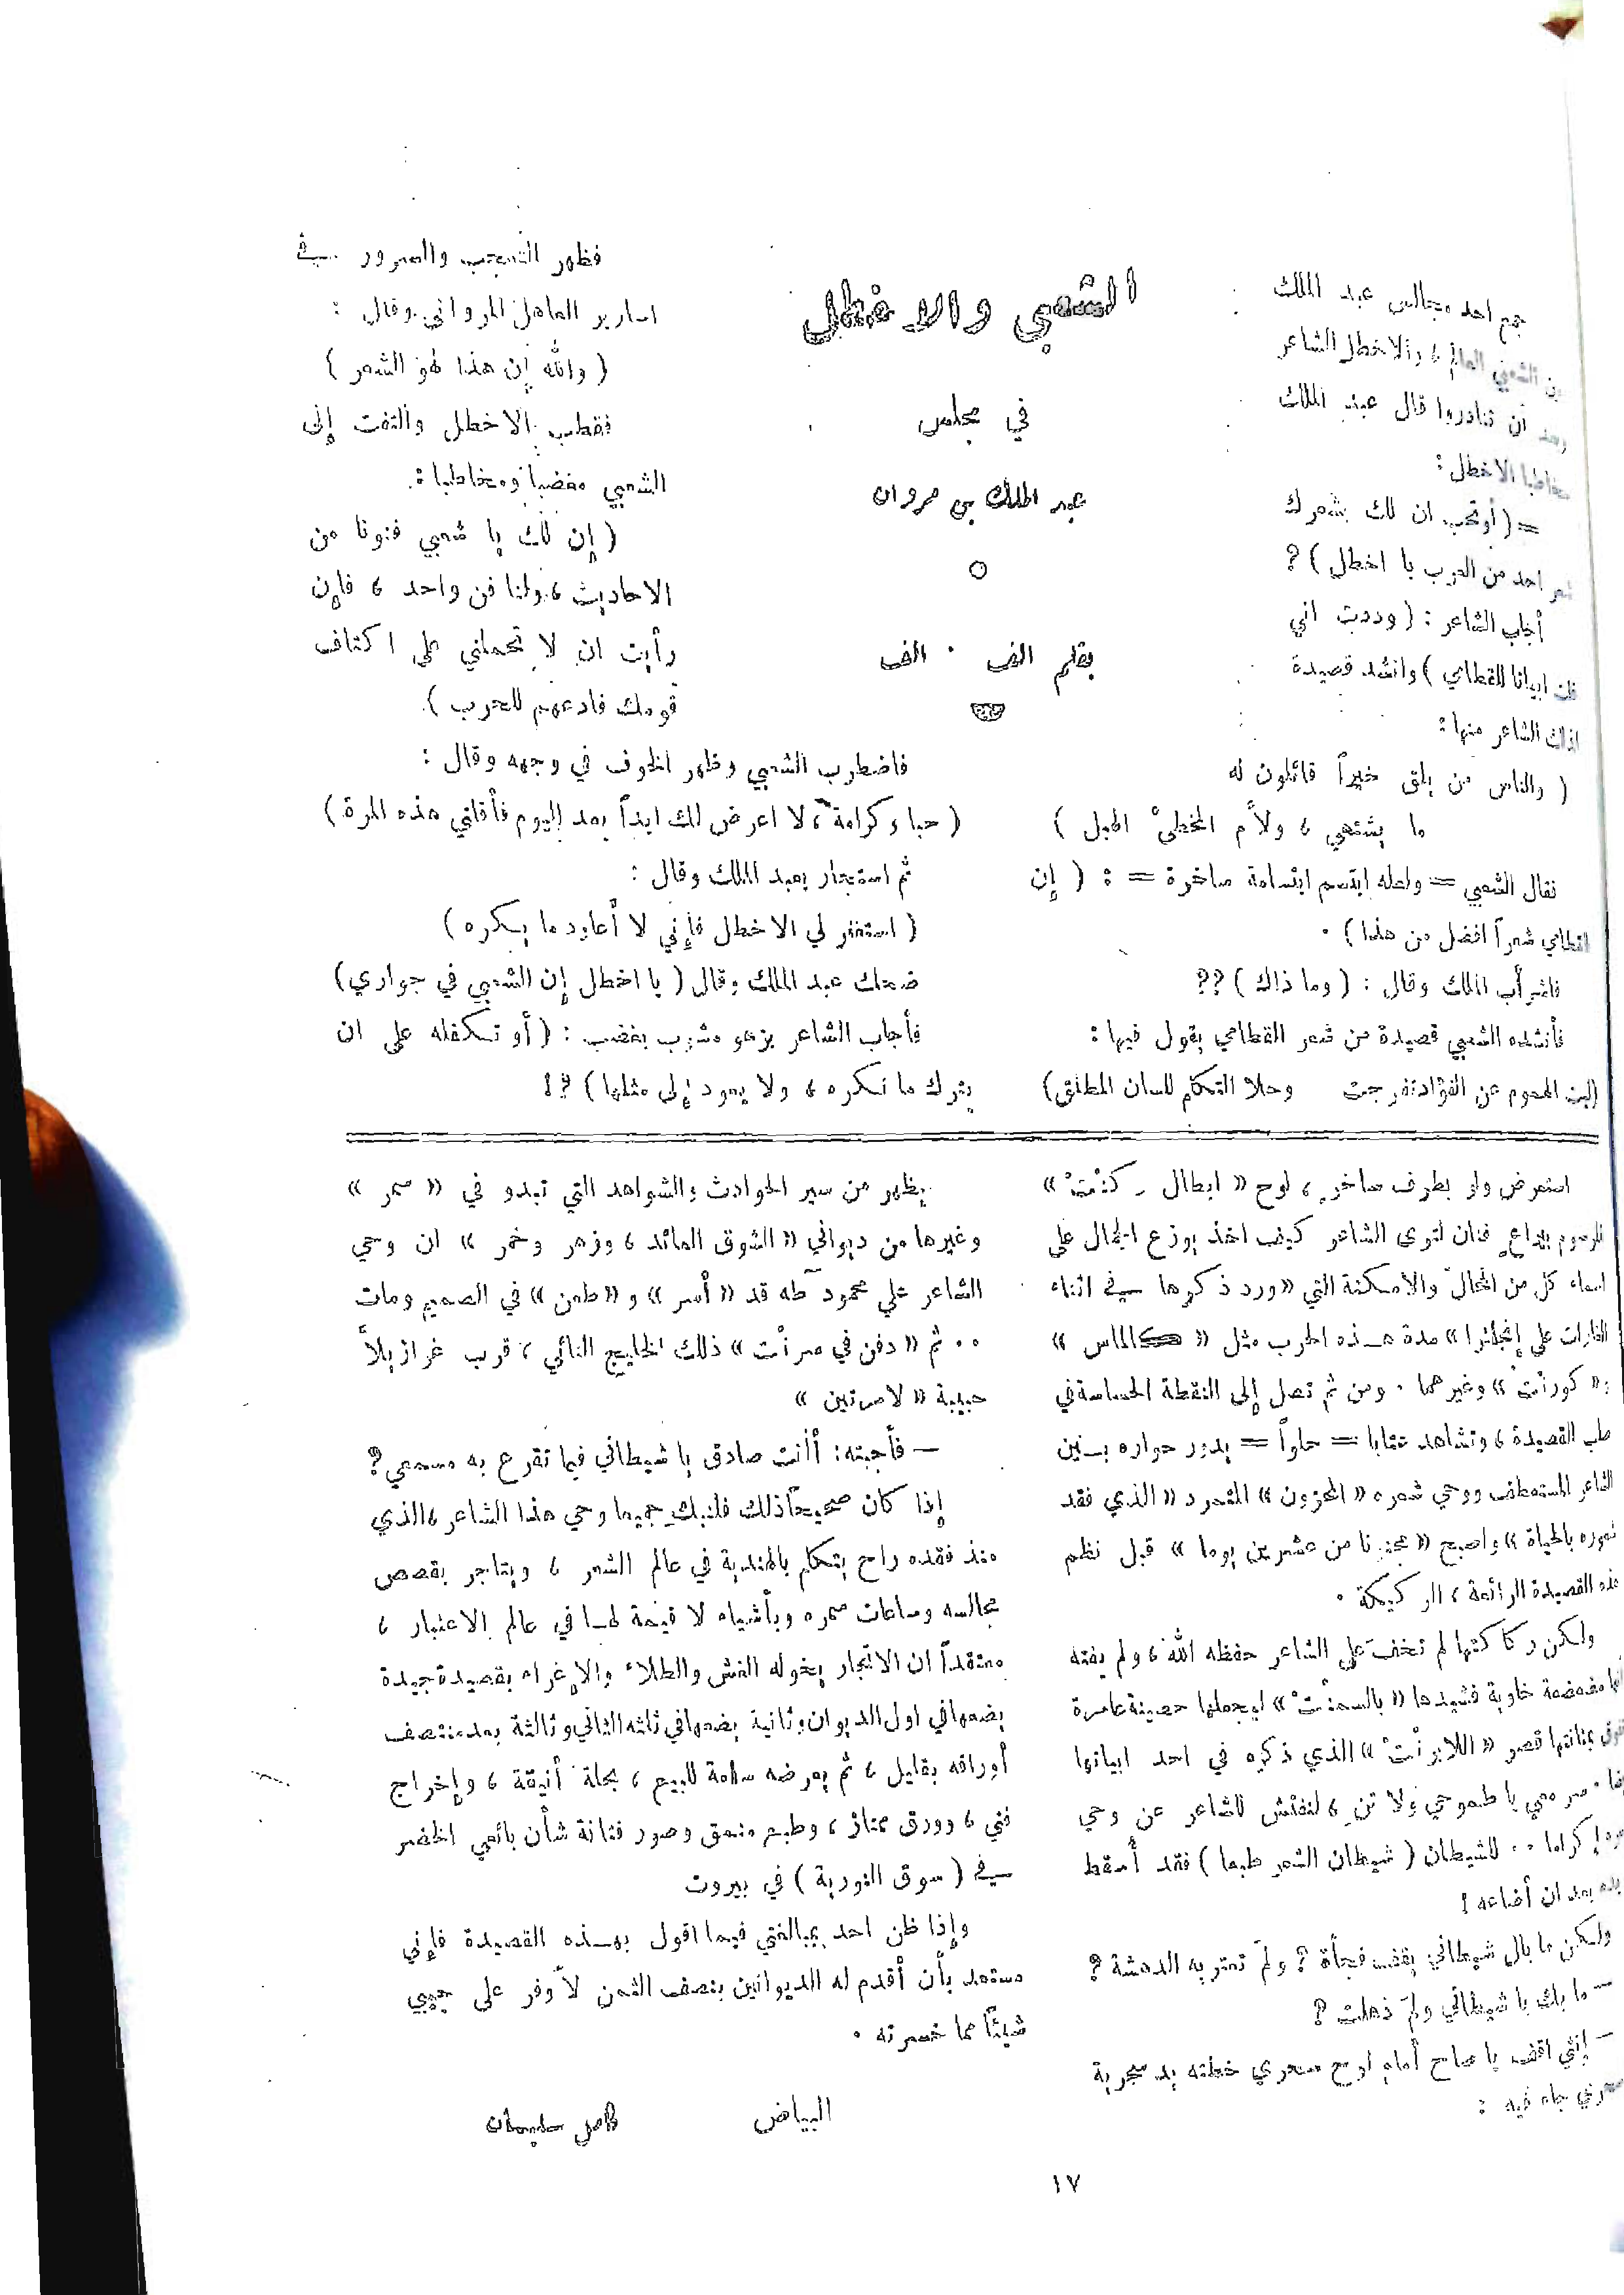 الشعبي والاخطل
في مجلس
عبد الملك بن مروان
بقلم الف . الف
جمع احد مجالس عبد الملك
بين الشعبي العالم ، والاخطل الشاعر
وبعد أن تنادروا قال عبد الملك
مخاطبا الاخطل :
= ( أوتحب ان لك بشعرك
شعر احد من العرب يا اخطل ) ؟
أجاب الشاعر : ( وددت اني
قلت ابياتا للقطامي ) وانشد قصيدة
لذلك الشاعر منها :
( والناس من يلق خيراً قائلون له
ما يشتهي ، ولأم المخطئ الهبل )
فقال الشعبي = ولعله ابتسم ابتسامة ساخرة = : ( إن
للقطامي شعراً افضل من هذا ) .
فاشرأب الملك وقال : ( وما ذاك ) ؟؟
فأنشده الشعبي قصيدة من شعر القطامي يقول فيها :
(ليت الهموم عن الفؤاد تفرجت وحلا التكلم للسان المطلق)
فظهر التعجب والسرور في
اسارير العاهل المرواني وقال :
( والله إن هذا لهو الشعر )
فقطب الاخطل والتفت إلى
الشعبي مغضباً ومخاطبا :
( إن لك يا شعبي فنونا من
الاحاديث ، ولنا فن واحد ، فإن
رأيت ان لا تحملني على اكتاف
قومك فادعهم للحرب ) .
فاضطرب الشعبي وظهر الخوف في وجهه وقال :
( حبا وكرامة ، لا اعرض لك ابداً بعد اليوم فأقلني هذه المرة )
ثم استجار بعبد الملك وقال :
( استغفر لي الاخطل فإني لا أعاود ما يكره )
ضحك عبد الملك وقال ( يا اخطل إن الشعبي في جواري )
فأجاب الشاعر بزهو مشرب بغضب : ( أو تكفله على ان
يترك ما نكره ، ولا يعود إلى مثلها ) ؟ !
استعرض ولو بطرف ساخر ، لوح « ابطال - كنْتْ »
للرسوم بيراع فنان لترى الشاعر كيف اخذ يوزع الجمال على
اسماء كل من المحال والامكنة التي « ورد ذكرها في اثناء
الغارات على إنجلترا » مدة هذه الحرب مثل « كالماس »
و « كورنْت » وغيرهما . ومن ثم تصل إلى النقطة الحساسة في
صلب القصيدة ، وتشاهد عتابا = حلواً = يدور حواره بين
الشاعر المستعطف ووحي شعره « المحزون » المتمرد « الذي فقد
شعوره بالحياة » واصبح « عجزنا من عشرين يوما » قبل نظم
هذه القصيدة الرائعة ، الركيكة .
ولكن ركاكتها لم تخفَ على الشاعر حفظه الله ، ولم يفته
انها مضعضعة خاوية فشيدها « بالسمنْتْ » ليجعلها حصينة عامرة
تفوق بمتانتها قصر « اللابرنْتْ » الذي ذكره في احد ابياتها
سر معي يا طموحي ولا تنِ ، لنفتش للشاعر عن وحي
إكراما . . للشيطان ( شيطان الشعر طبعا ) فقد أسقط
بيده بعد ان أضاعه !
ولكن ما بال شيطاني يقف فجأة ؟ ولمَ تعتريه الدهشة ؟
— ما بك يا شيطاني ولمَ ذهلت ؟
— إنني اقف يا صاح أمام لوح سحري خطته يد سحرية
جاء فيه :
يظهر من سير الحوادث والشواهد التي تبدو في « سمر »
وغيرها من ديواني « الشوق العائد ، وزهر وخمر » ان وحي
الشاعر علي محمود طه قد « أسر » و « طعن » في الصميم ومات
.. ثم « دفن في سرنْت » ذلك الخليج النائي ، قرب غرازيلاّ
حبيبة « لامرتين »
— فأجبته : أأنت صادق يا شيطاني فيما تقرع به مسمعي ؟
إذا كان صحيحاً ذلك فلنبكِ جميعا وحي هذا الشاعر ، الذي
منذ فقده راح يتكلم بالهندية في عالم الشعر ، ويتاجر بقصص
مجالسه وساعات سمره وبأشياء لا قيمة لها في عالم الاعتبار ،
معتقداً ان الاتجار يخوله الغش والطلاء والإغراء بقصيدة جيدة
يضعها في اول الديوان وثانية يضعها في ثلثه الثاني وثالثة بعد منتصف
أوراقه بقليل ، ثم يعرضه سلعة للبيع ، بحلة أنيقة ، وإخراج
فني ، وورق ممتاز ، وطبع منمق وصور فتانة شأن بائعي الخضر
في ( سوق النورية ) في بيروت
وإذا ظن احد بمبالغتي فيما اقول بهذه القصيدة فإني
مستعد بأن أقدم له الديوانين بنصف الثمن لأوفر على جيبي
شيئاً مما خسرته .
البياض
كامل سليمان
١٧